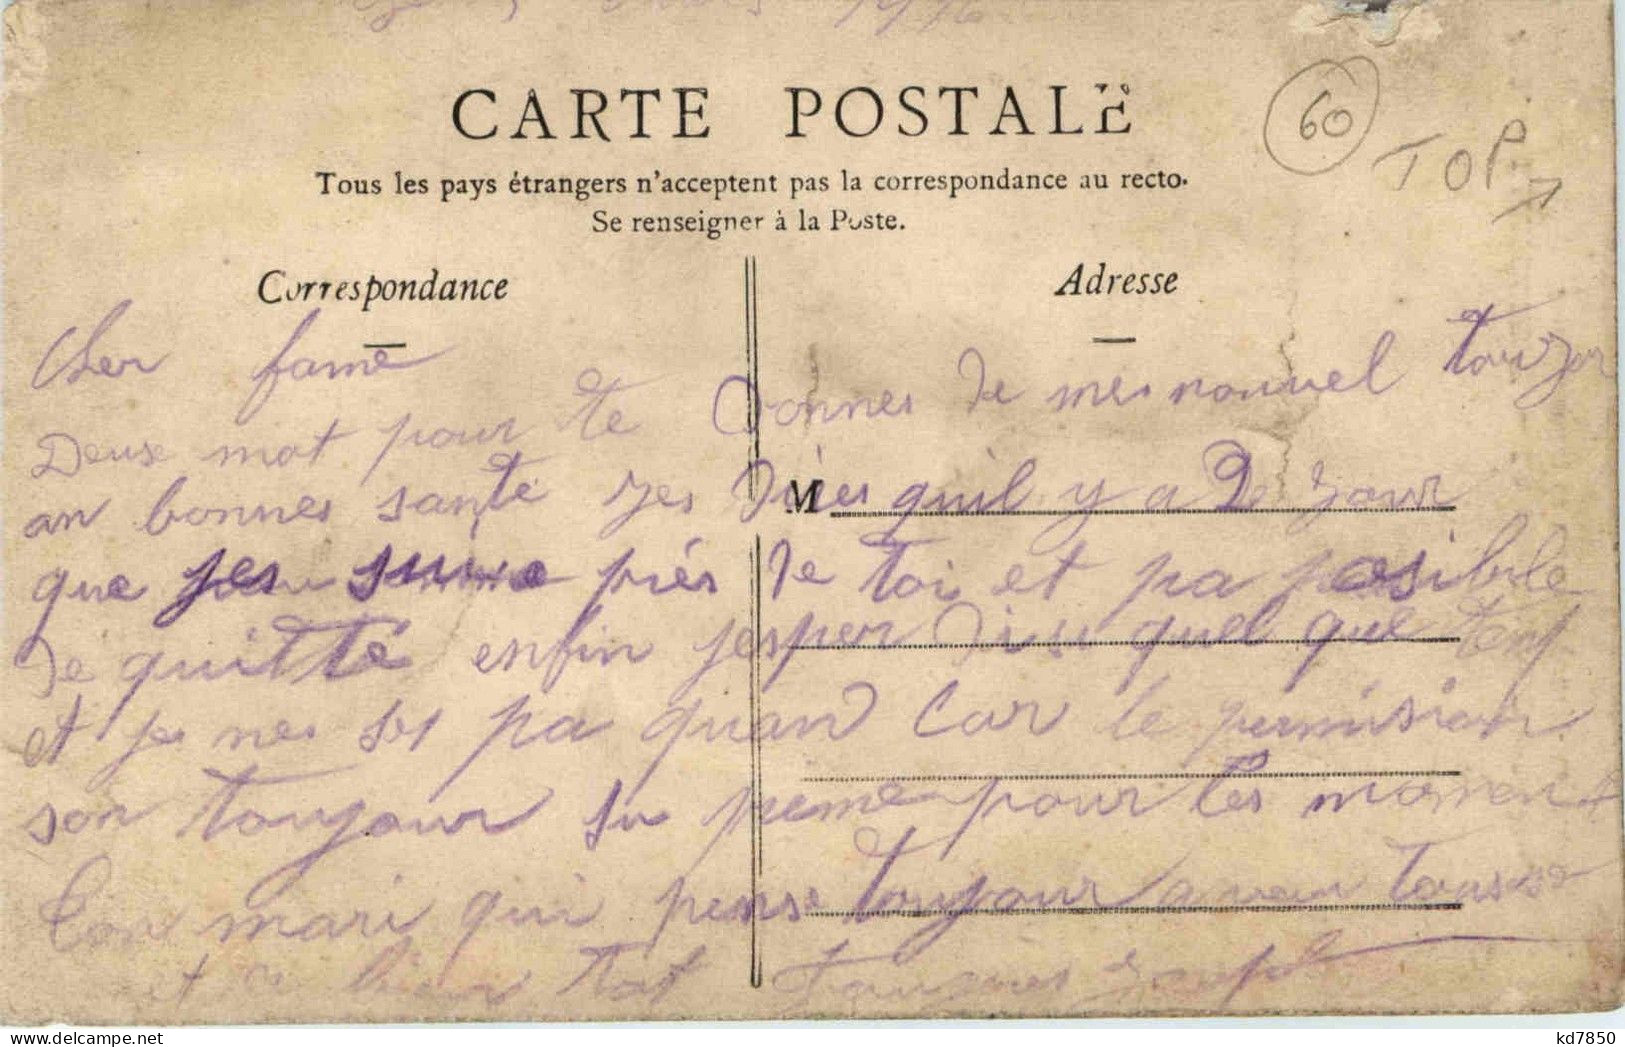 1916
CARTE POSTALE
60
TOP
Tous les pays étrangers n'acceptent pas la correspondance au recto.
Se renseigner à la Poste.
Correspondance
Adresse
Cher fame
Deuse mot pour te donnes de mes nouvel toujor
an bonnes santé jes dires quil y a De jour
que jes suive près de toi et pa posible
de quitté enfin jesper disu quel que temp
et jes nes ses pa quand car le permision
son toujour su prime pour les moment
Ton mari qui pense toujour a vous tousse
et a bien tot
M
kd7850